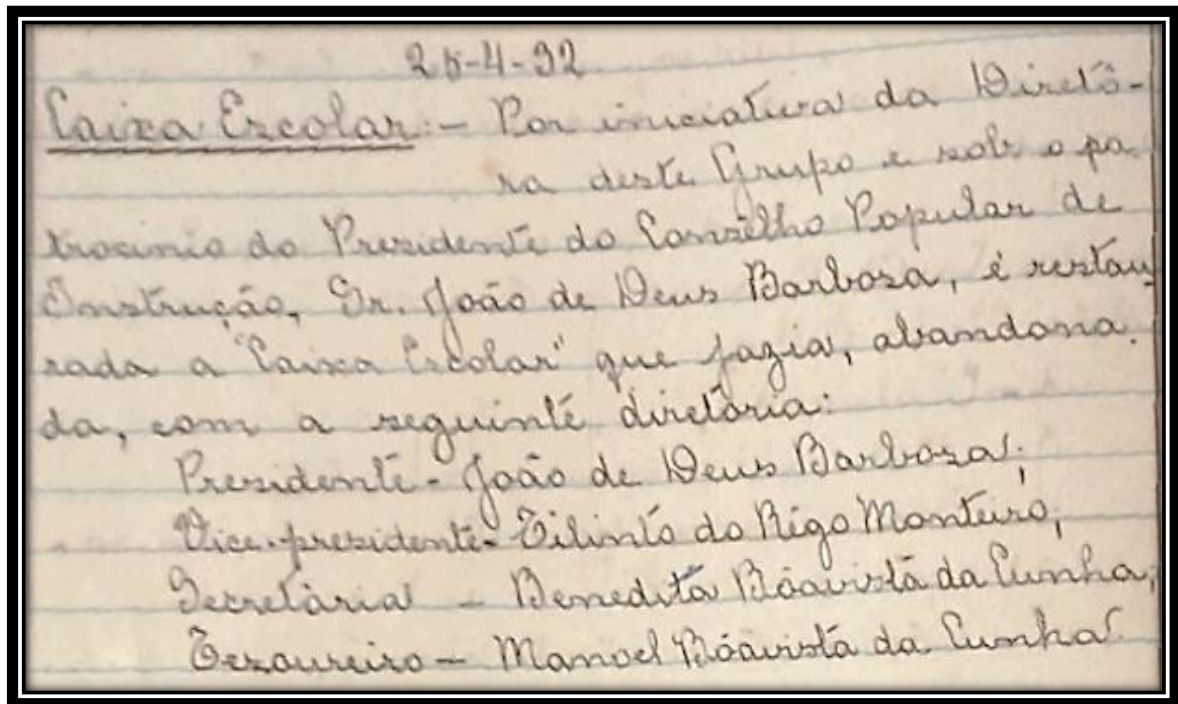 25-4-32
Caixa Escolar:- Por iniciativa da Diretô-
ra deste Grupo e sob o pa
trocinio do Presidente do Conselho Popular de
Instrução, Dr. João de Deus Barbosa, é restau
rada a "Caixa Escolar" que jazia, abandona
da, com a seguinte diretoria:
Presidente - João de Deus Barbosa;
Vice-presidente - do Rêgo Monteiro,
Secretária - Benedita Bôavista da Cunha,
Tezoureiro - Manoel Bôavista da Cunha